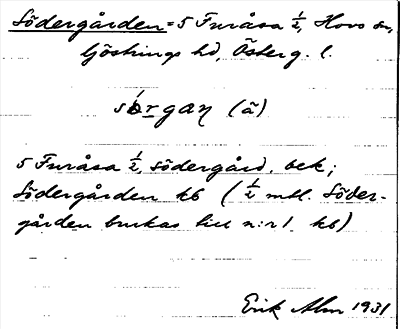 Södergården = 5 Furåsa ½, Hovs sn,
Göstrings hd, Österg. l.
(ã)
5 Furåsa ½ södergård. bek;
Södergården kb (½ mtl. Söder-
gården brukas till n:r 1. kb)
Erik Alm 1931